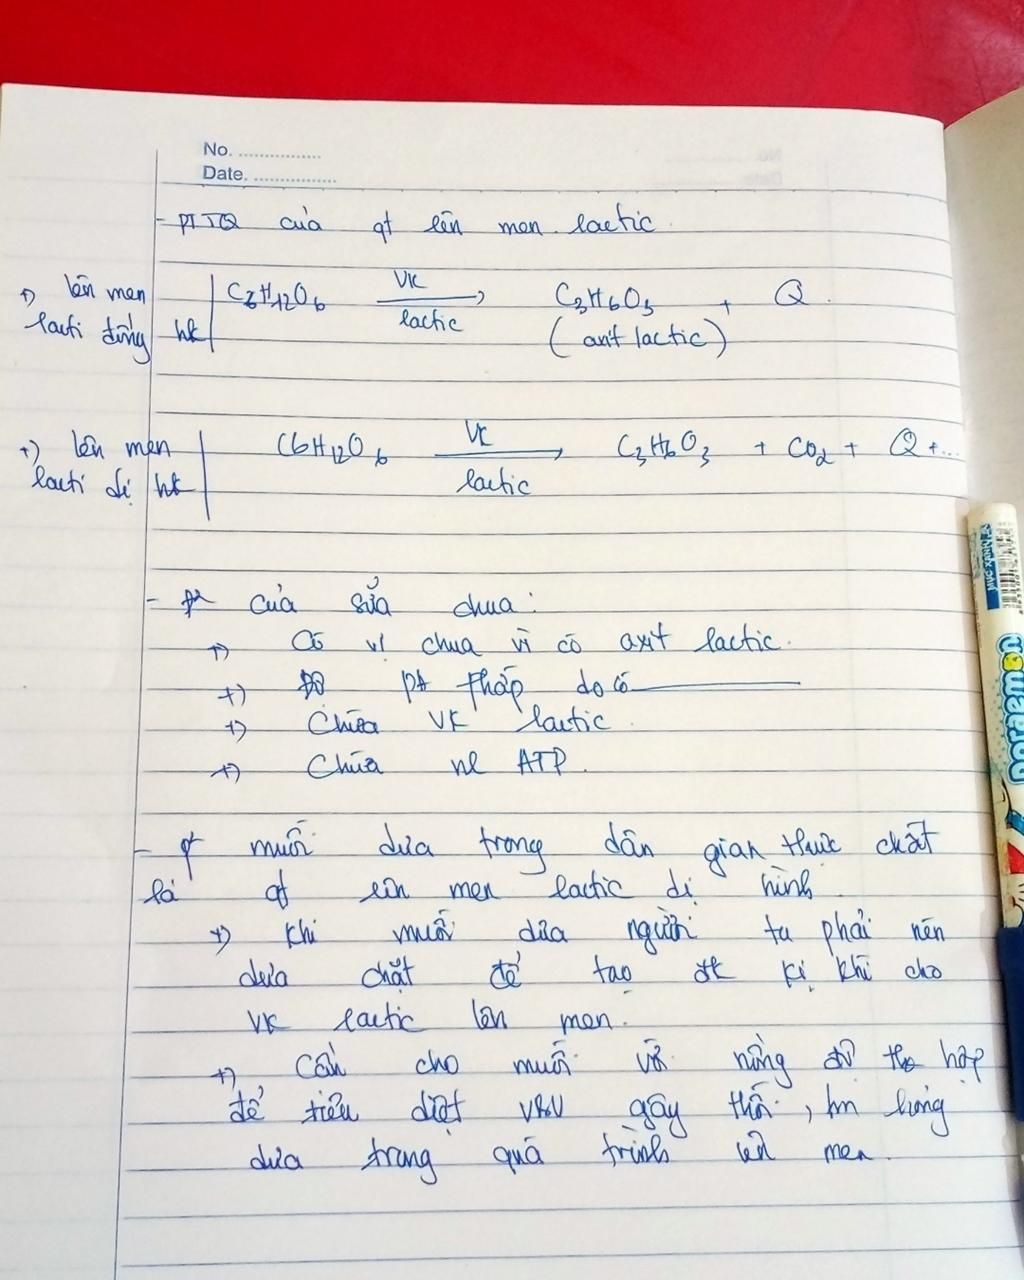 No. ................
Date. ................
- PTTQ của qt lên men lactic.
+) lên men lacti đồng hk
C6H12O6 VK lactic → C3H6O3 + Q.
(axit lactic)
+) lên men lacti dị hk
C6H12O6 VK lactic → C3H6O3 + CO2 + Q + ...
- của sữa chua:
+) Có vị chua vì có axit lactic.
+) Độ pH thấp do có ————
+) Chứa VK lactic.
+) Chứa nl ATP.
- qt muối dưa trong dân gian thực chất
là qt lên men lactic dị hình.
+) Khi muối dưa người ta phải nén
dưa chặt để tạo đk kị khí cho
VK lactic lên men.
+) Cần cho muối với nồng độ th hợp
để tiêu diệt VSV gây thối, hỏng
dưa trong quá trình lên men.
MỰC XANH/BLUE
Doraemon